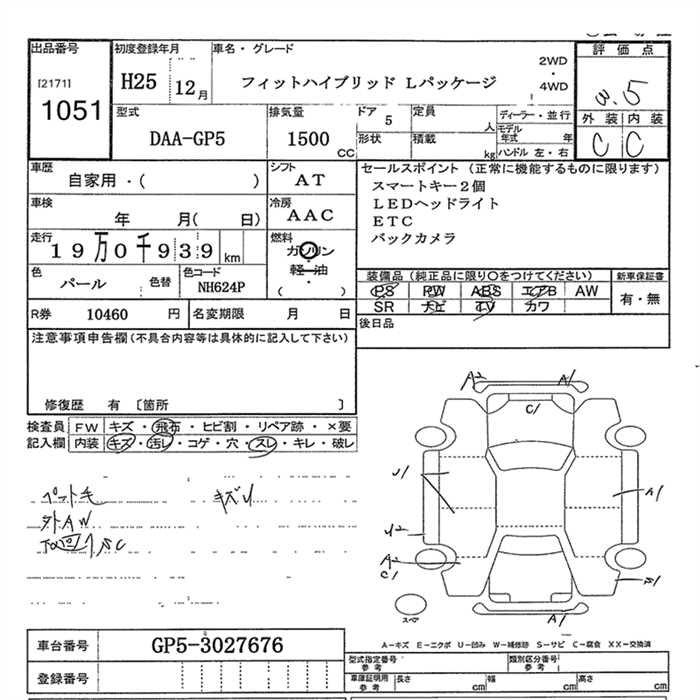 出品番号 初度登録年月 車名・グレード 評価点
[2171] 1051
H25 12月 フィットハイブリッド Lパッケージ 2WD・4WD 3.5
外装 内装
C C
型式 排気量 ドア 定員 ディーラー・並行
DAA-GP5 1500 CC 5 人 モデル年式 年
形状 積載 kg ハンドル 左・右
車歴 シフト セールスポイント(正常に機能するものに限ります)
自家用・( ) AT
スマートキー2個
LEDヘッドライト
ETC
バックカメラ
車検 年 月( 日) 冷房 AAC
走行 19万0千939km 燃料 ガソリン・軽油・( )
色 パール 色替 色コード NH624P
装備品(純正品に限り○をつけてください) 新車保証書
PS PW ABS エアB AW 有・無
SR ナビ TV カワ
R券 10460 円 名変期限 月 日
後日品
注意事項申告欄(不具合内容等は具体的に記入して下さい)
修復歴 有 〔箇所 〕
検査員記入欄 FW キズ・飛石・ヒビ割・リペア跡・×要
内装 キズ・汚レ・コゲ・穴・スレ・キレ・破レ
ペット毛 キズレ
外AW
A2 A1
C1
U1 A1
U2
A2
C1
S1
A1
スペア
A-キズ E-エクボ U-凹み W-補修跡 S-サビ C-腐食 XX-交換済
車台番号 GP5-3027676
登録番号
型式指定番号 参考 類別区分番号 参考
車庫証明用 参考 長さ cm 幅 cm 高さ cm